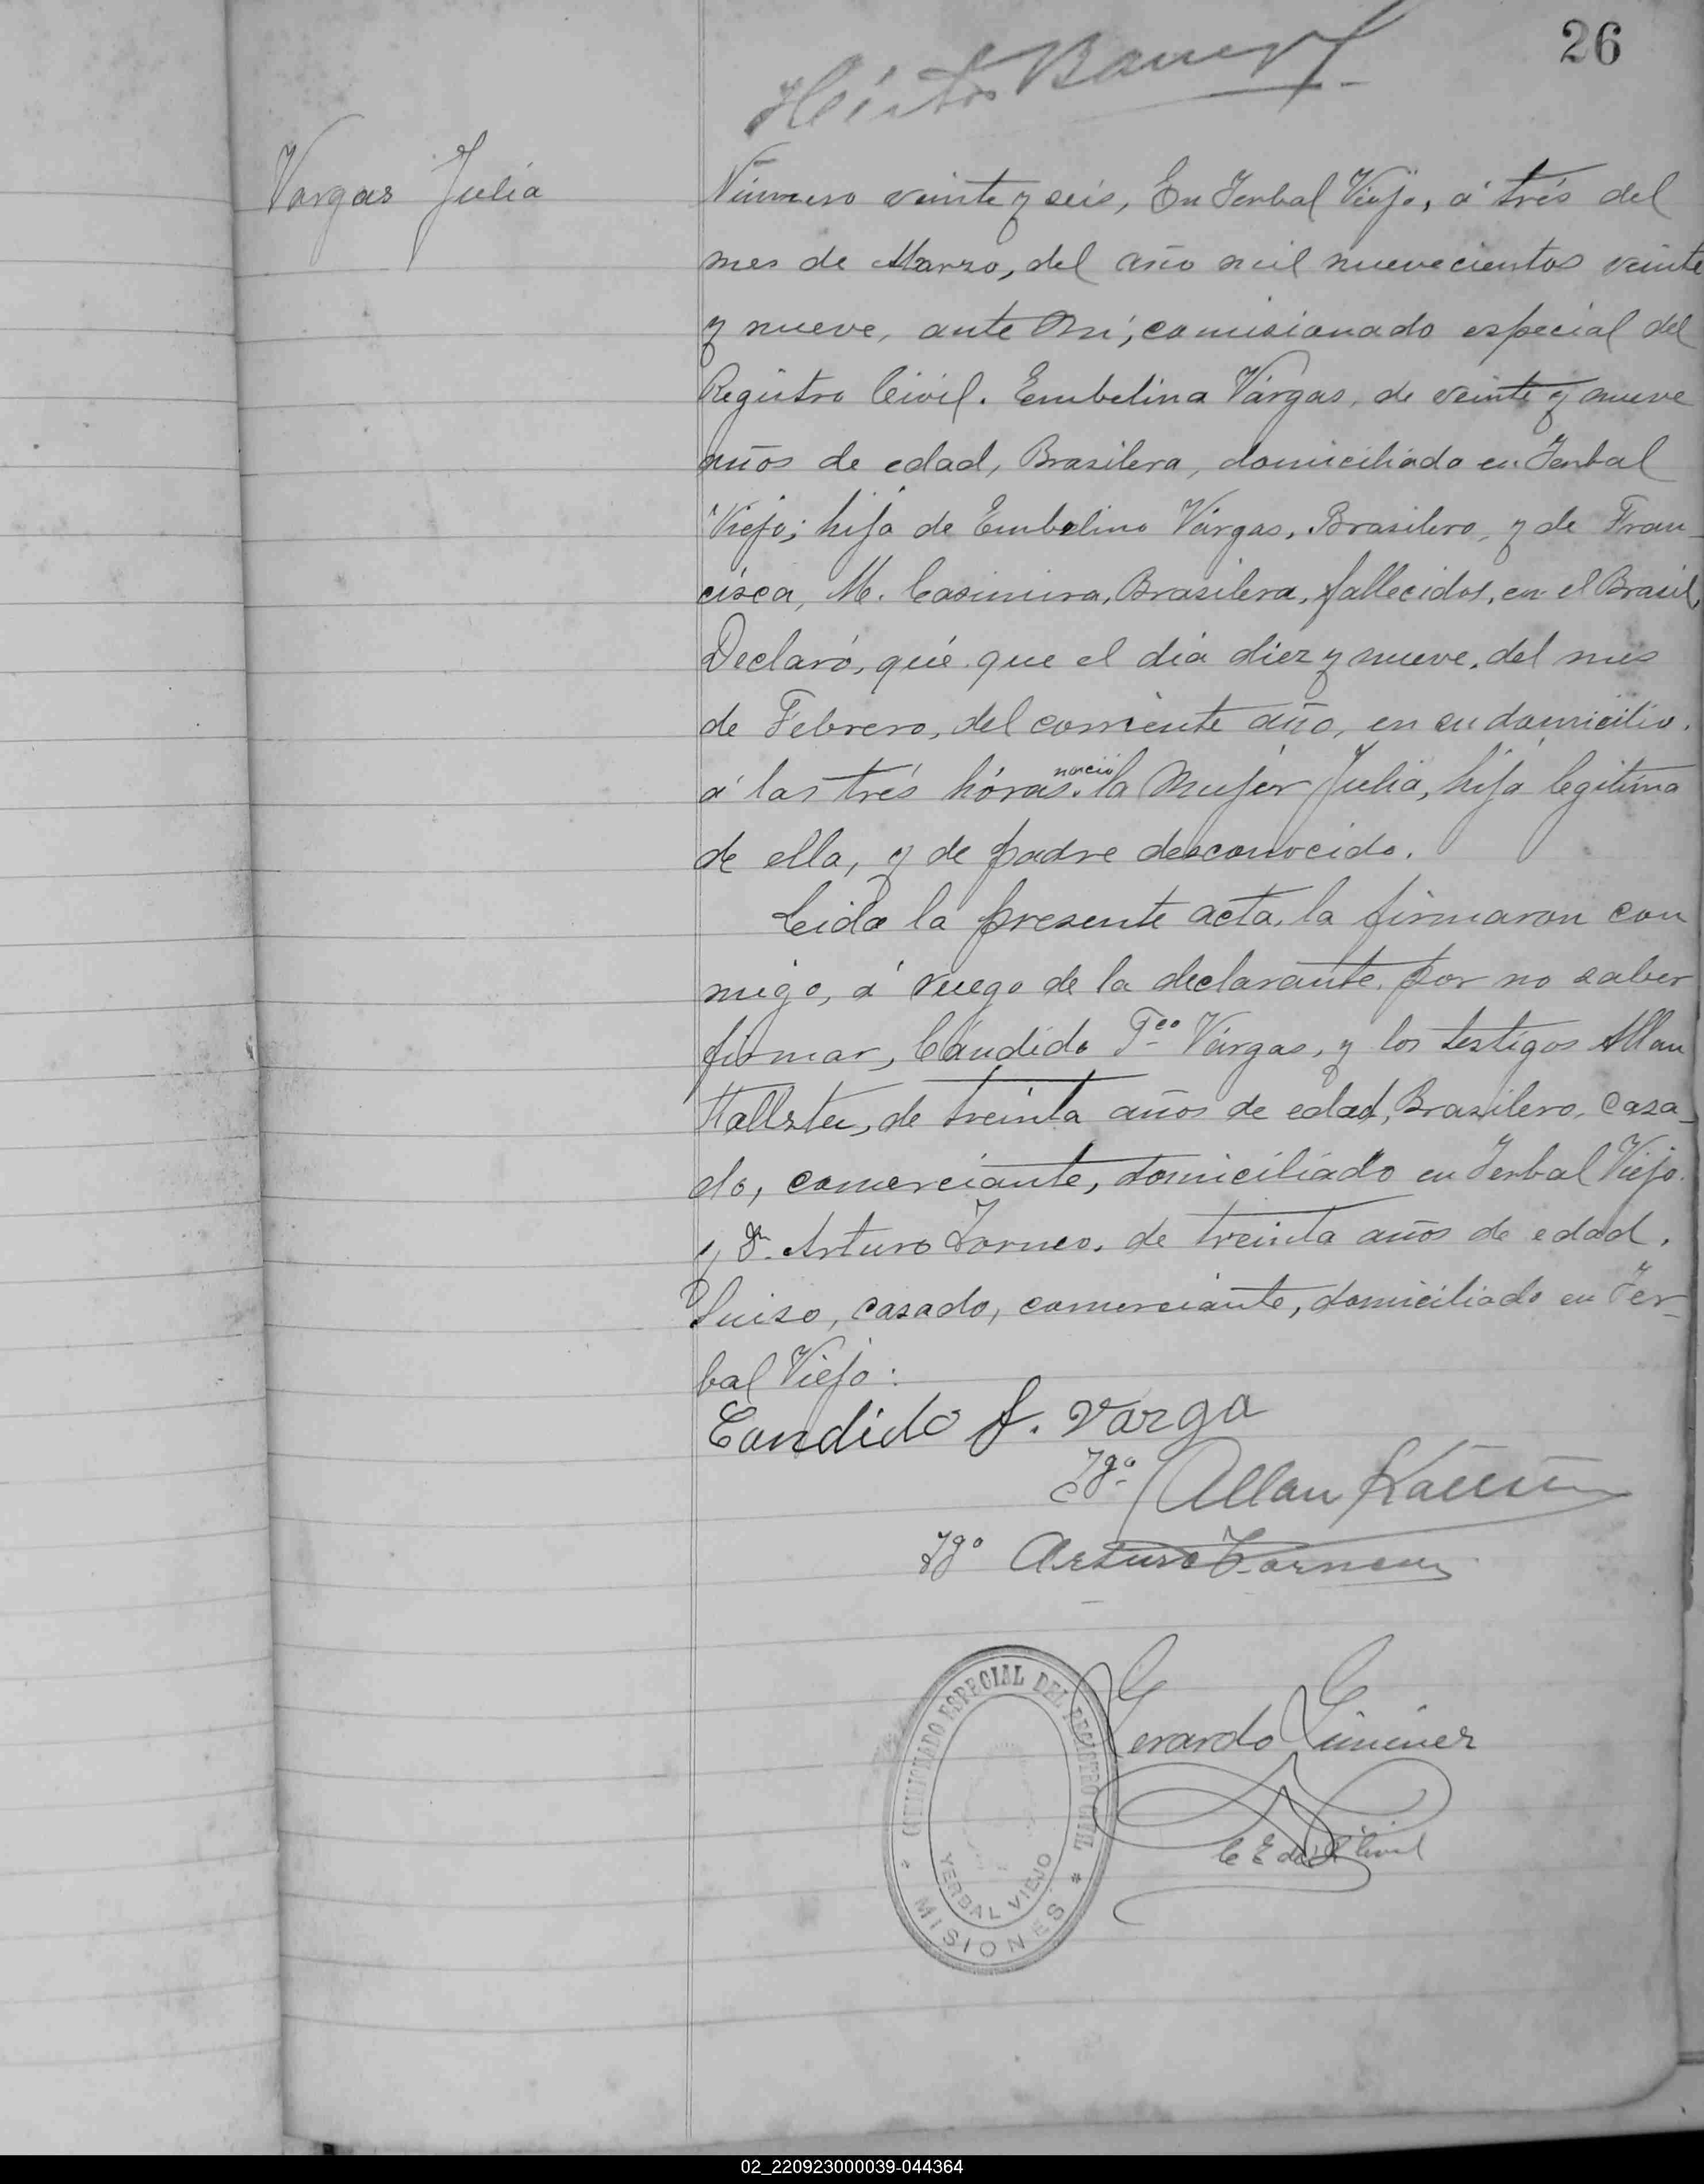 26
Héctor Barreyro
Vargas Julia
Número veinte y seis, En Yerbal Viejo, á trés del
mes de Marzo, del año mil nuevecientos veinte
y nueve, ante Mí, comisionado especial del
Registro Civil. Embelina Vargas, de veinte y nueve
años de edad, Brasilera, domiciliada en Yerbal
Viejo; hija de Embelino Várgas, Brasilero, y de Fran-
cisca, M. Casimira, Brasilera, fallecidos, en el Brasil,
Declaró, qué que el día diez y nueve, del mes
de Febrero, del corriente año, en su domicilio.
á las trés hóras nació la Mujér Julia, hija legitima
de ella, y de padre desconocido.
Leida la presente acta, la firmaron con
migo, á ruego de la declarante, por no saber
firmar, Cándido Fco Várgas, y los testigos Allan
de treinta años de edad, Brasilero, casa-
do, comerciante, domiciliado en Yerbal Viejo.
y Dn. Arturo de treinta años de edad.
Suizo, casado, comerciante, domiciliado en Yer-
bal Viejo:
Candido f. Varga
Tgo. Allan
Tgo Arturo
Gerardo Giménez
C E del R Civil
COMISIONADO ESPECIAL DEL REGISTRO CIVIL
YERBAL VIEJO
* MISIONES *
02_220923000039-044364